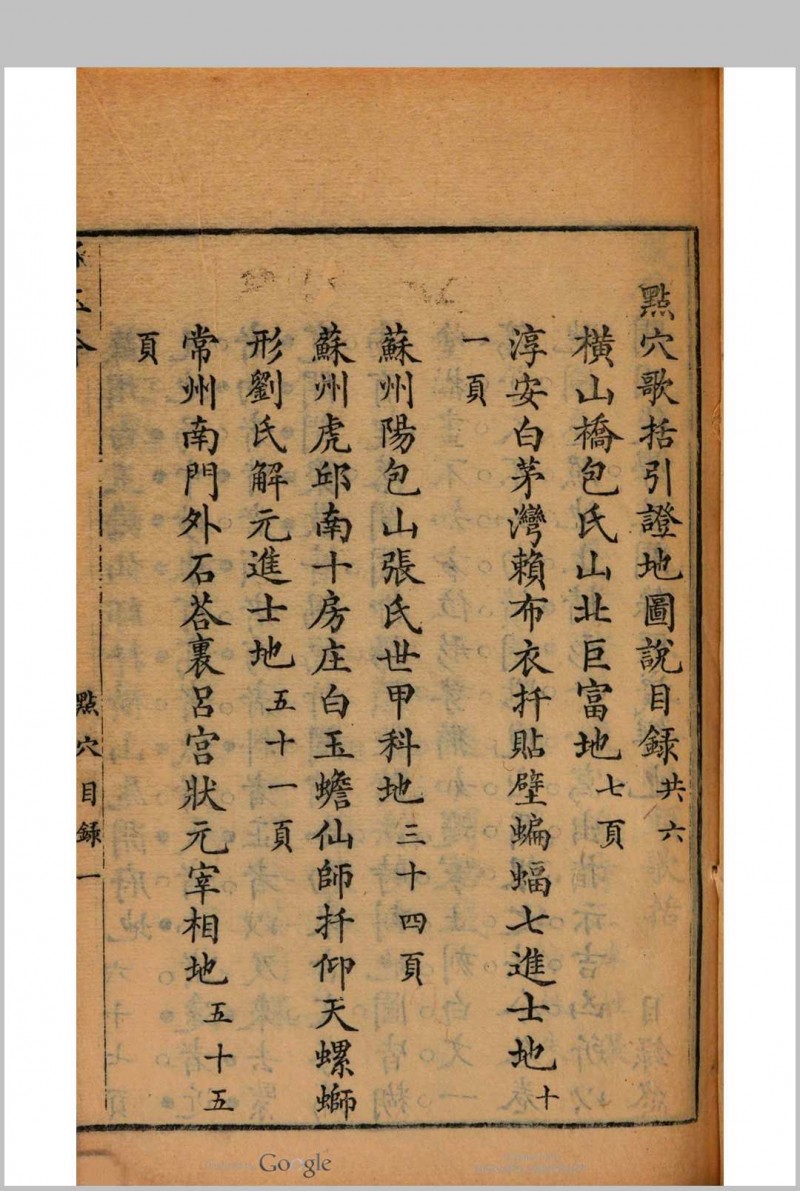 點穴歌括引證地圖說目録共六
橫山橋包氏山北巨富地七頁
淳安白茅灣賴布衣扦貼壁蝙蝠七進士地十
一頁
蘇州陽包山張氏世甲科地三十四頁
蘇州虎邱南十房庄白玉蟾仙師扦仰天螺螄
形劉氏解元進士地五十一頁
常州南門外石荅裏呂宫狀元宰相地五十五
頁
點穴目録一
Google